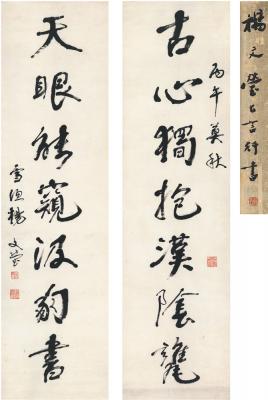 古心獨抱漢陰甕
丙午莫秋
天眼能窺汲冢書
雪漁楊文瑩
楊文瑩七言行書